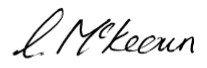 L. McKeown